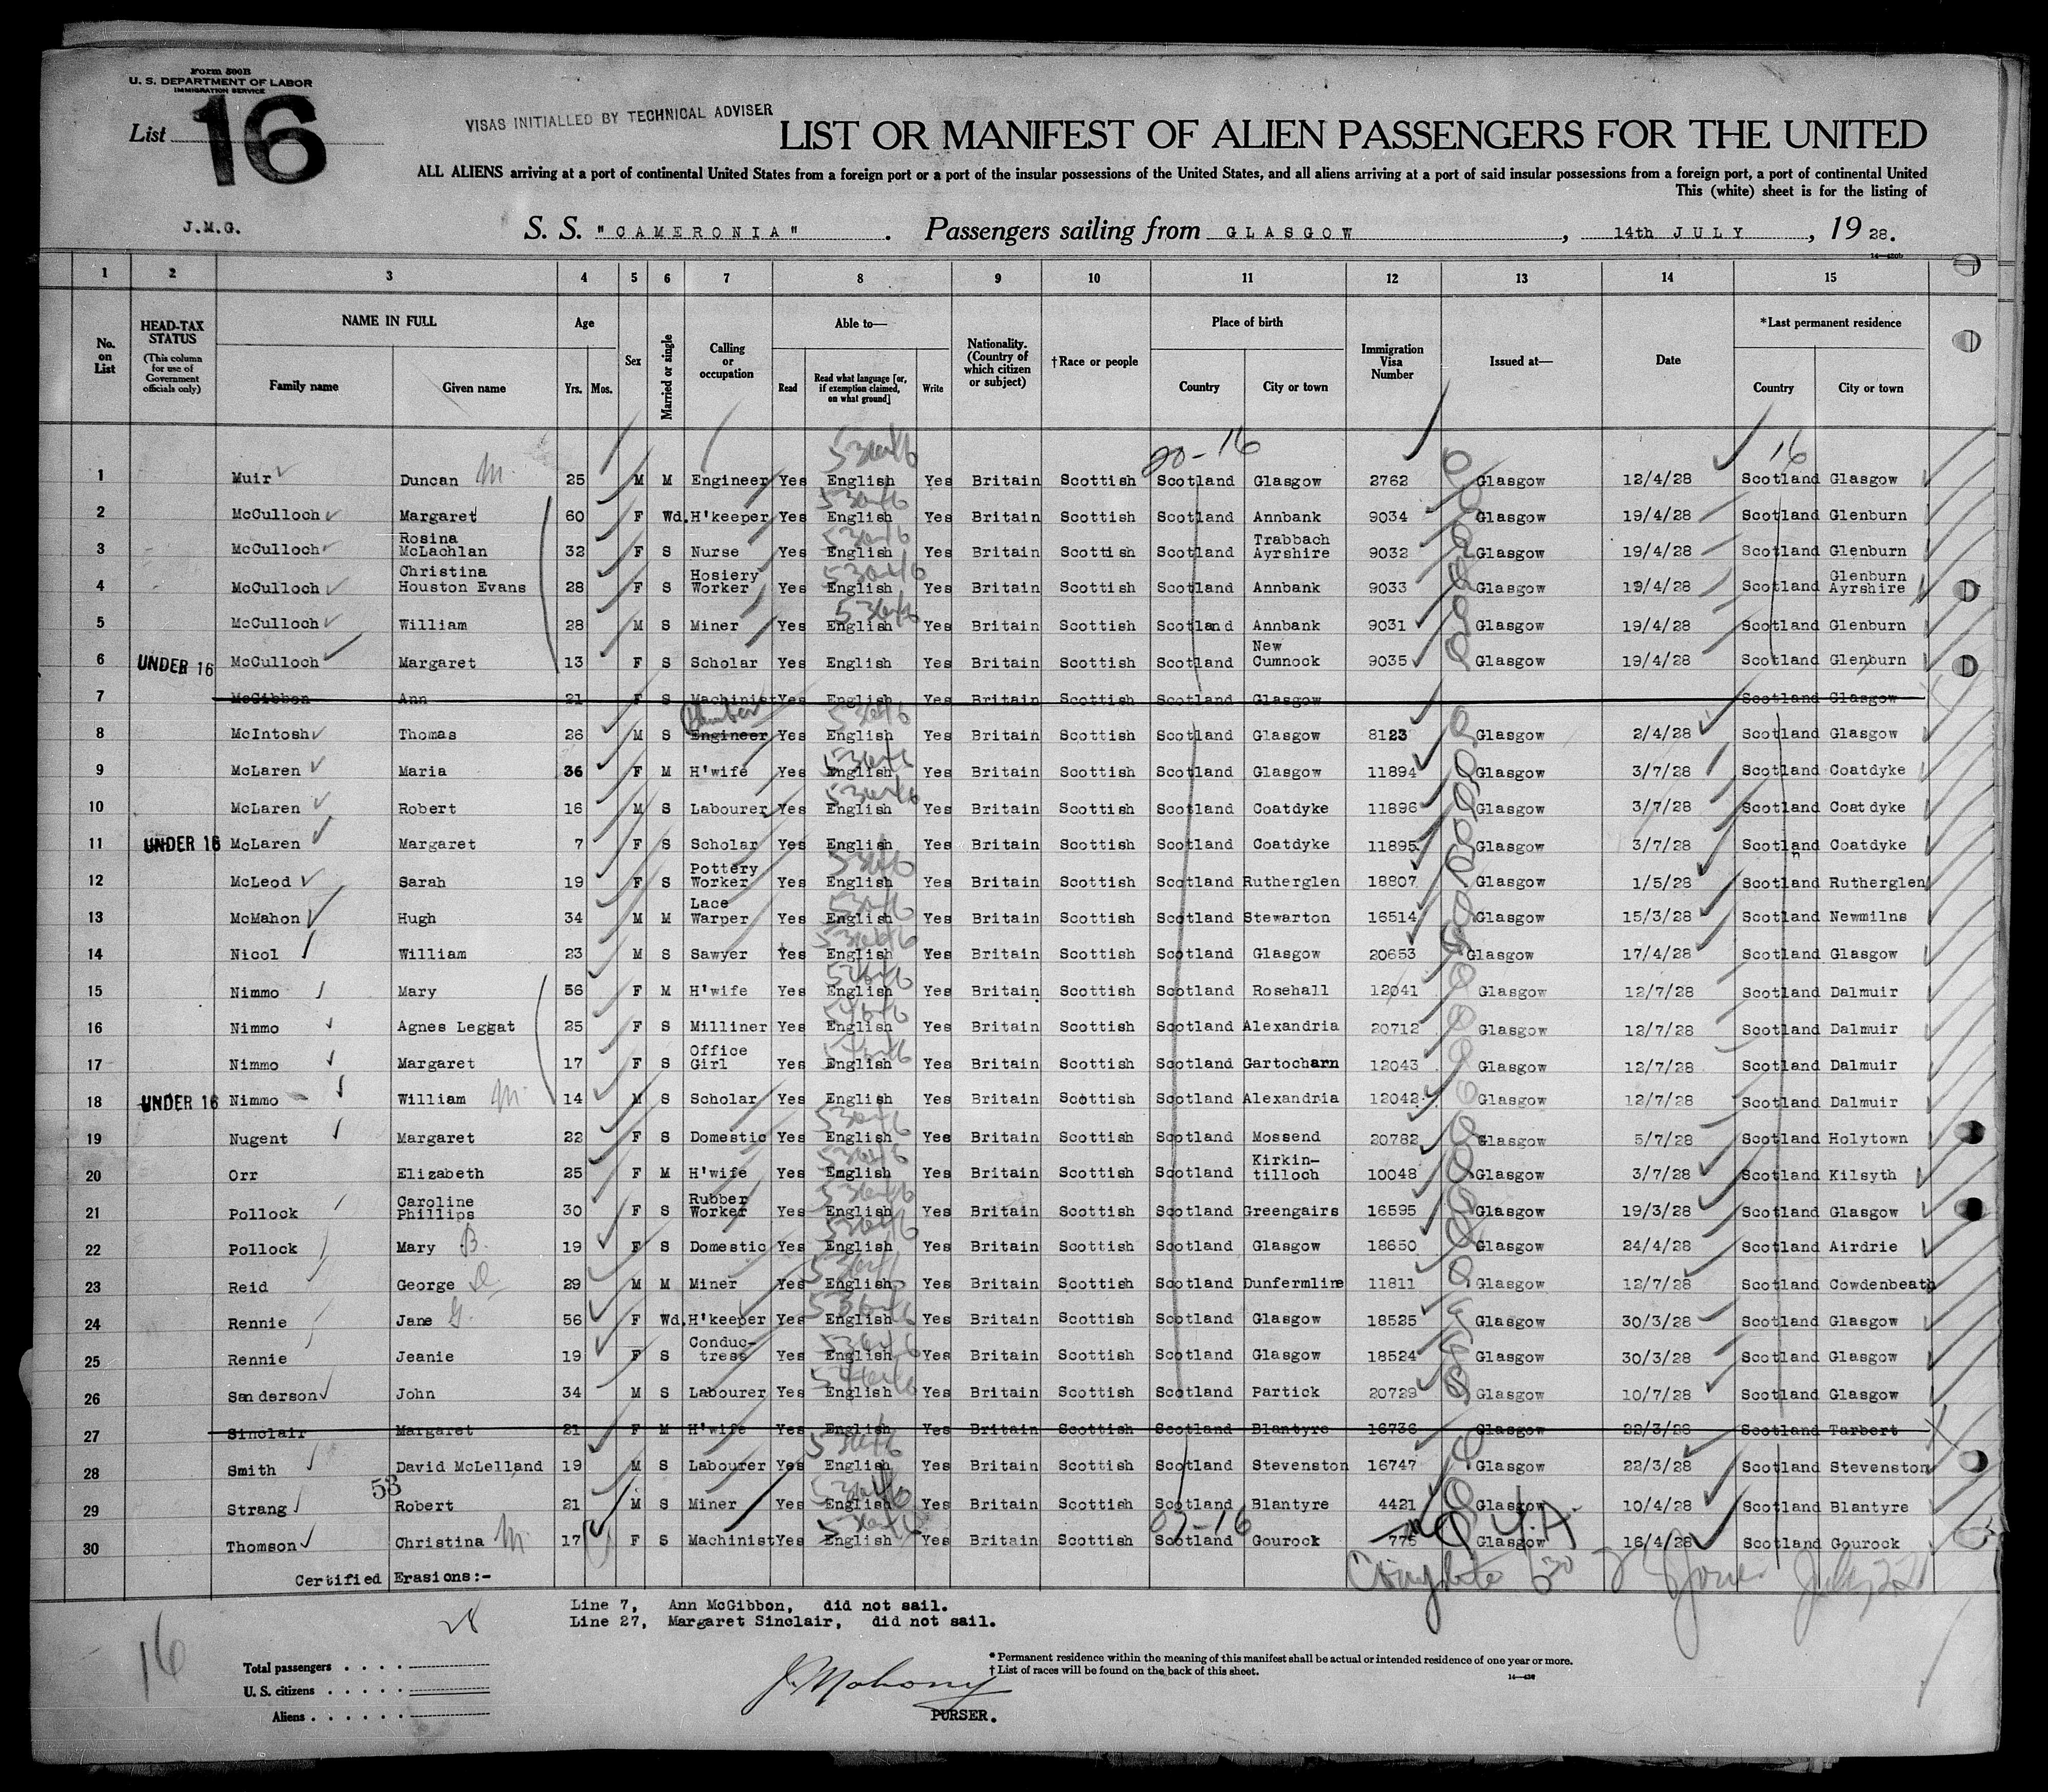 Form 500B
U. S. DEPARTMENT OF LABOR
IMMIGRATION SERVICE
List 16
VISAS INITIALLED BY TECHNICAL ADVISER
LIST OR MANIFEST OF ALIEN PASSENGERS FOR THE UNITED
ALL ALIENS arriving at a port of continental United States from a foreign port or a port of the insular possessions of the United States, and all aliens arriving at a port of said insular possessions from a foreign port, a port of continental United
This (white) sheet is for the listing of
J.M.G.
S. S. "CAMERONIA". Passengers sailing from GLASGOW, 14th JULY, 1928.
1 2 3 4 5 6 7 8 9 10 11 12 13 14 15
No. on List
HEAD-TAX STATUS (This column for use of Government officials only)
NAME IN FULL Family name Given name
Age Yrs. Mos.
Sex
Married or single
Calling or occupation
Able to— Read Read what language [or, if exemption claimed, on what ground] Write
Nationality. (Country of which citizen or subject)
†Race or people
Place of birth Country City or town
Immigration Visa Number
Issued at—
Date
*Last permanent residence Country City or town
20-16 16
1 Muir Duncan M. 25 M M Engineer Yes English Yes Britain Scottish Scotland Glasgow 2762 Glasgow 12/4/28 Scotland Glasgow
2 McCulloch Margaret 60 F Wd. H'keeper Yes English Yes Britain Scottish Scotland Annbank 9034 Glasgow 19/4/28 Scotland Glenburn
3 McCulloch Rosina McLachlan 32 F S Nurse Yes English Yes Britain Scottish Scotland Trabbach Ayrshire 9032 Glasgow 19/4/28 Scotland Glenburn
4 McCulloch Christina Houston Evans 28 F S Hosiery Worker Yes English Yes Britain Scottish Scotland Annbank 9033 Glasgow 19/4/28 Scotland Glenburn Ayrshire
5 McCulloch William 28 M S Miner Yes English Yes Britain Scottish Scotland Annbank 9031 Glasgow 19/4/28 Scotland Glenburn
6 UNDER 16 McCulloch Margaret 13 F S Scholar Yes English Yes Britain Scottish Scotland New Cumnock 9035 Glasgow 19/4/28 Scotland Glenburn
7 McGibbon Ann 21 F S Machinist Yes English Yes Britain Scottish Scotland Glasgow Scotland Glasgow
8 McIntosh Thomas 26 M S Plumber Engineer Yes English Yes Britain Scottish Scotland Glasgow 8123 Glasgow 2/4/28 Scotland Glasgow
9 McLaren Maria 36 F M H'wife Yes English Yes Britain Scottish Scotland Glasgow 11894 Glasgow 3/7/28 Scotland Coatdyke
10 McLaren Robert 16 M S Labourer Yes English Yes Britain Scottish Scotland Coatdyke 11896 Glasgow 3/7/28 Scotland Coatdyke
11 UNDER 16 McLaren Margaret 7 F S Scholar Yes English Yes Britain Scottish Scotland Coatdyke 11895 Glasgow 3/7/28 Scotland Coatdyke
12 McLeod Sarah 19 F S Pottery Worker Yes English Yes Britain Scottish Scotland Rutherglen 18807 Glasgow 1/5/28 Scotland Rutherglen
13 McMahon Hugh 34 M M Lace Warper Yes English Yes Britain Scottish Scotland Stewarton 16514 Glasgow 15/3/28 Scotland Newmilns
14 Nicol William 23 M S Sawyer Yes English Yes Britain Scottish Scotland Glasgow 20653 Glasgow 17/4/28 Scotland Glasgow
15 Nimmo Mary 56 F M H'wife Yes English Yes Britain Scottish Scotland Rosehall 12041 Glasgow 12/7/28 Scotland Dalmuir
16 Nimmo Agnes Leggat 25 F S Milliner Yes English Yes Britain Scottish Scotland Alexandria 20712 Glasgow 12/7/28 Scotland Dalmuir
17 Nimmo Margaret 17 F S Office Girl Yes English Yes Britain Scottish Scotland Gartocharn 12043 Glasgow 12/7/28 Scotland Dalmuir
18 UNDER 16 Nimmo William M. 14 M S Scholar Yes English Yes Britain Scottish Scotland Alexandria 12042 Glasgow 12/7/28 Scotland Dalmuir
19 Nugent Margaret 22 F S Domestic Yes English Yes Britain Scottish Scotland Mossend 20782 Glasgow 5/7/28 Scotland Holytown
20 Orr Elizabeth 25 F M H'wife Yes English Yes Britain Scottish Scotland Kirkin-tilloch 10048 Glasgow 3/7/28 Scotland Kilsyth
21 Pollock Caroline Phillips 30 F S Rubber Worker Yes English Yes Britain Scottish Scotland Greengairs 16595 Glasgow 19/3/28 Scotland Glasgow
22 Pollock Mary B. 19 F S Domestic Yes English Yes Britain Scottish Scotland Glasgow 18650 Glasgow 24/4/28 Scotland Airdrie
23 Reid George 29 M M Miner Yes English Yes Britain Scottish Scotland Dunfermline 11811 Glasgow 12/7/28 Scotland Cowdenbeath
24 Rennie Jane G. 56 F Wd. H'keeper Yes English Yes Britain Scottish Scotland Glasgow 18525 Glasgow 30/3/28 Scotland Glasgow
25 Rennie Jeanie 19 F S Conduc-tress Yes English Yes Britain Scottish Scotland Glasgow 18524 Glasgow 30/3/28 Scotland Glasgow
26 Sanderson John 34 M S Labourer Yes English Yes Britain Scottish Scotland Partick 20729 Glasgow 10/7/28 Scotland Glasgow
27 Sinclair Margaret 21 F M H'wife Yes English Yes Britain Scottish Scotland Blantyre 16736 Glasgow 22/3/28 Scotland Tarbert
28 Smith David McLelland 19 M S Labourer Yes English Yes Britain Scottish Scotland Stevenston 16747 Glasgow 22/3/28 Scotland Stevenston
58
29 Strang Robert 21 M S Miner Yes English Yes Britain Scottish Scotland Blantyre 4421 Glasgow 10/4/28 Scotland Blantyre
30 Thomson Christina M. 17 F S Machinist Yes English Yes Britain Scottish Scotland Gourock 775 Glasgow 16/4/28 Scotland Gourock
Certified Erasions:-
Line 7, Ann McGibbon, did not sail.
Line 27, Margaret Sinclair, did not sail.
28
16
Total passengers
U. S. citizens
Aliens
* Permanent residence within the meaning of this manifest shall be actual or intended residence of one year or more.
† List of races will be found on the back of this sheet.
J. Mahony
PURSER.